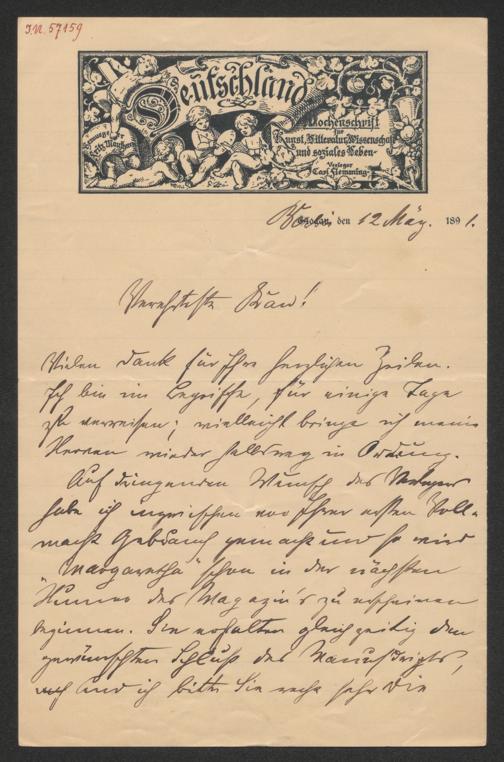 J.N. 57159
Deutschland
Wochenschrift
für
Kunst, Litteratur, Wissenschaft
und soziales Leben
Herausgeber
Fritz Mauthner
Verleger
Carl Flemming
Glogau, den 12 März. 1891.
Verehrteste Frau!
Vielen Dank für Ihre herzlichen Zeilen.
Ich bin im Begriffe, für einige Tage
zu verreisen; vielleicht bringe ich meine
Nerven wieder halbwegs in Ordnung.
Auf dringenden Wunsch des Verlegers
habe ich inzwischen von Ihrer ersten Voll-
macht Gebrauch gemacht und so wird
"Margaretha" schon in der nächsten
Nummer des Magazin's zu erscheinen
beginnen. Sie erhalten gleichzeitig den
gewünschten Schluß des Manuscripts,
und ich bitte Sie recht sehr die